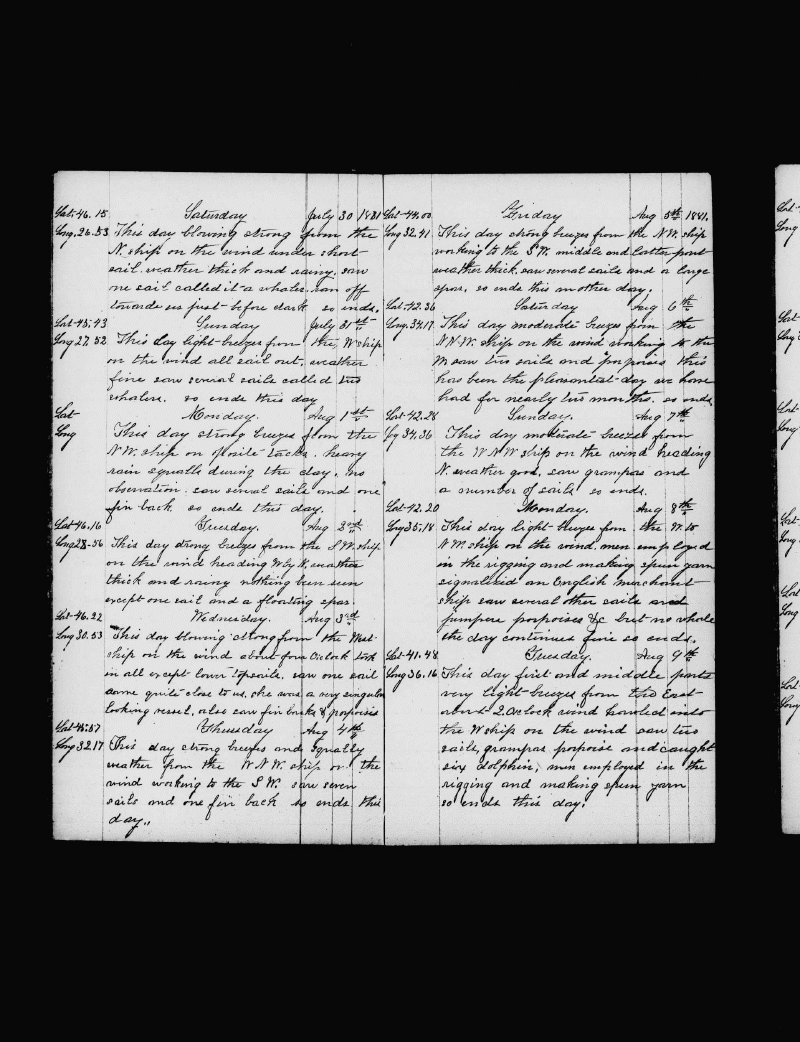 Lat. 46.15 Saturday July 30 1881
Long. 26.53 This day blowing strong from the
N. ship on the wind under short
sail. weather thick and rainy. saw
one sail called it a whaler. ran off
towards us just before dark so ends.
Lat 45.43 Sunday July 31st
Long 27.52 This day light breezes from the W ship
on the wind all sail out, weather
fine saw several sails called two
whalers. so ends this day
Lat Monday. Aug 1st
Long This day strong breezes from the
N.W. ship on tacks. heavy
rain squalls during the day. no
observation. saw several sails and one
fin back. so ends this day.
Lat 46.16 Tuesday. Aug 2nd
Long 28.56 This day strong breezes from the S.W. ship
on the wind heading W by N. weather
thick and rainy nothing been seen
except one sail and a floating spar.
Lat 46.22 Wednesday. Aug 3rd
Long 30.53 This day blowing strong from the West
ship on the wind about four Oclock took
in all except lower topsails. saw one sail
came quite close to us. she was a very singular
looking vessel. also saw fin backs & porpoises
Lat 45.57 Thursday Aug 4th
Long 32.17 This day strong breezes and squally
weather from the W.N.W. ship on the
wind working to the S.W. saw seven
sails and one fin back so ends this
day.,
Lat 44.00 Friday Aug 5th 1881.
Long 32.41. This day strong breezes from the N.W. ship
working to the S.W. middle and latter part
weather thick. saw several sails and a large
spar. so ends this another day.
Lat. 42.36 Saturday Aug 6th
Long. 34.17. This day moderate breezes from the
N.N.W. ship on the wind working to the
W. saw two sails and porpoises this
has been the pleasantest day we have
had for nearly two months. so ends
Lat. 42.28 Sunday. Aug 7th
Long 34.36 This day moderate breezes from
the W N W ship on the wind heading
N. weather good. saw grampus and
a number of sails so ends.
Lat. 42.20 Monday. Aug 8th
Long 35.18 This day light breezes from the W. to
N.W. ship on the wind. men employed
in the rigging and making spun yarn
signalized an English Merchant
ship saw several other sails and
jumpers porpoises &c but no whale
the day continues fine so ends.
Lat 41.48 Tuesday. Aug 9th
Long 36.16 This day first and middle parts
very light breezes from the East
about 2 Oclock wind hauled into
the W ship on the wind saw two
sails, grampus porpoise and caught
six dolphin, men employed in the
rigging and making spun yarn
so ends this day.